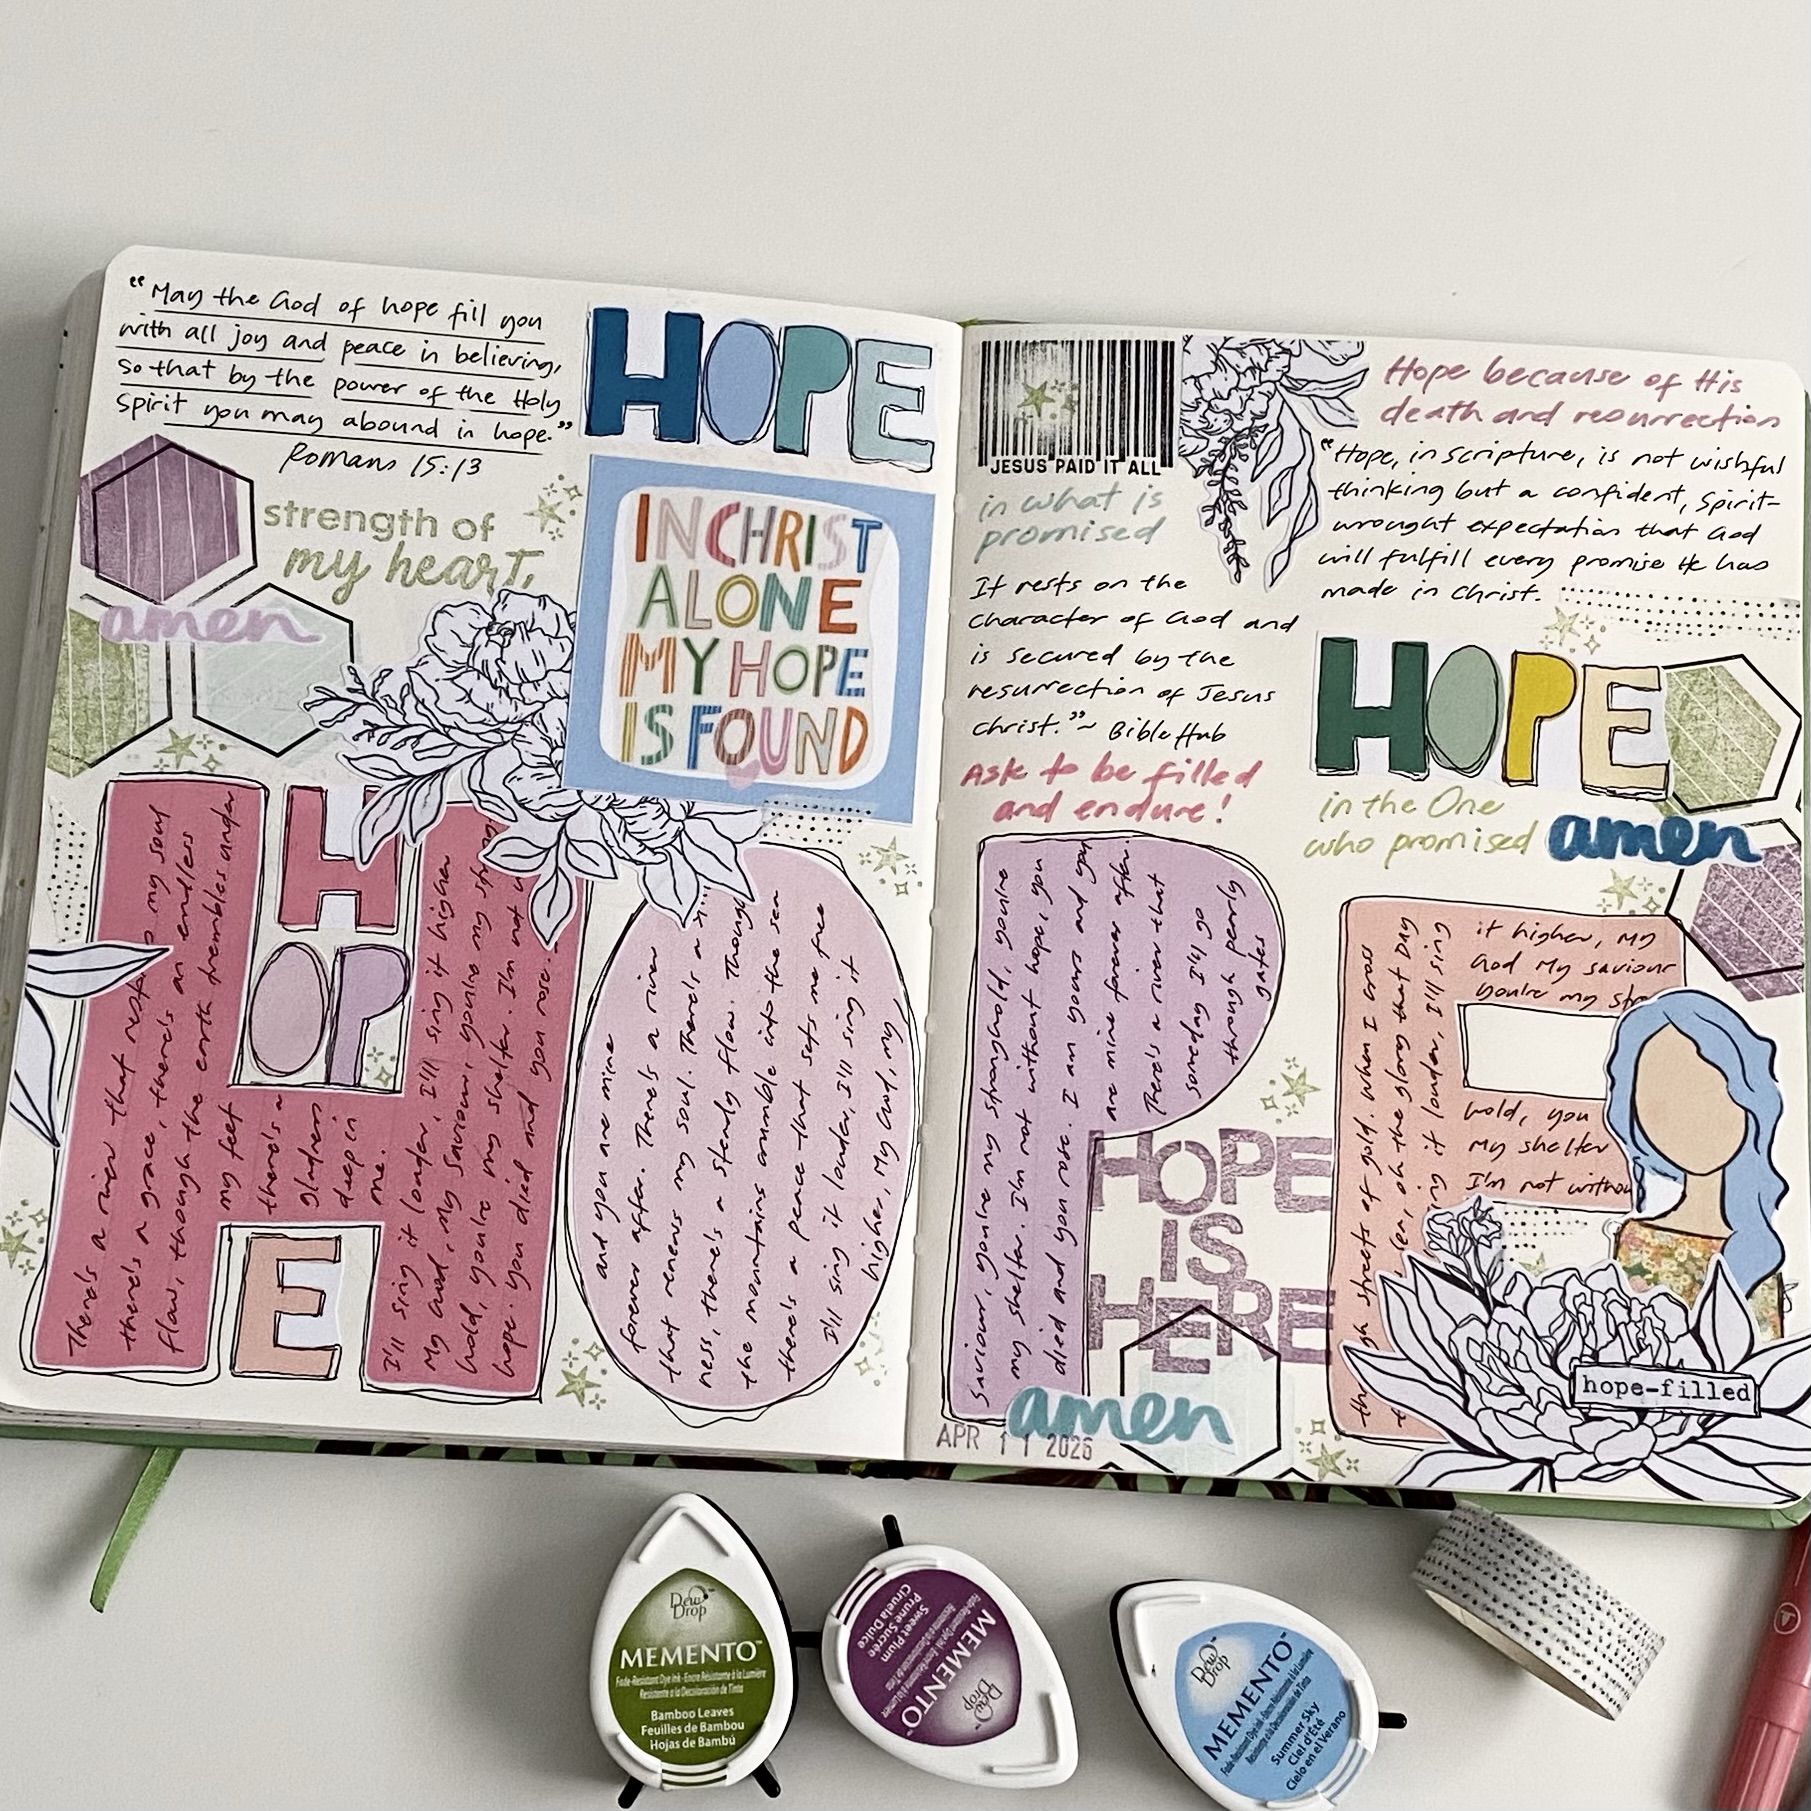 "May the God of hope fill you
with all joy and peace in believing,
so that by the power of the Holy
Spirit you may abound in hope."
Romans 15:13
HOPE
strength of
my heart,
amen
IN CHRIST
ALONE
MY HOPE
IS FOUND
HOPE
There's a river that my soul
there's a grace, there's an endless
flow, though the earth trembles under
my feet
there's a
gladness
deep in
me.
I'll sing it louder, I'll sing it higher
My God, My Saviour, you're my strong
hold, you're my shelter. I'm not
hope. you died and you rose.
and you are mine
forever after. There's a river
that renews my soul. There's a
ness, there's a steady flow. Though
the mountains crumble into the sea
there's a peace that sets me free
I'll sing it louder, I'll sing it
higher, My God, my
JESUS PAID IT ALL
in what is
promised
It rests on the
character of God and
is secured by the
resurrection of Jesus
Christ."~ BibleHub
Ask to be filled
and endure!
Hope because of His
death and resurrection
"Hope, in scripture, is not wishful
thinking but a confident, Spirit-
wrought expectation that God
will fulfill every promise He has
made in Christ.
HOPE
in the One
who promised
amen
Saviour, you're my stronghold, you're
my shelter. I'm not without hope, you
died and you rose. I am yours and you
are mine forever after.
There's a river that
someday I'll go
through pearly
gates
HOPE
IS
HERE
amen
APR 11 2026
streets of gold. When I cross
oh the glory that DAY
it louder, I'll sing
it higher, My
God My Saviour
you're my
hold, you
my shelter
I'm not
hope-filled
Dew Drop
MEMENTO™
Fade-Resistant Dye Ink · Encre Résistante à la Lumière
Resistente a la Decoloración de Tinta
Bamboo Leaves
Feuilles de Bambou
Hojas de Bambú
Dew Drop
MEMENTO™
Sweet Plum
Prune Sucrée
Ciruela Dulce
Dew Drop
MEMENTO™
Summer Sky
Ciel d'Été
Cielo en el Verano